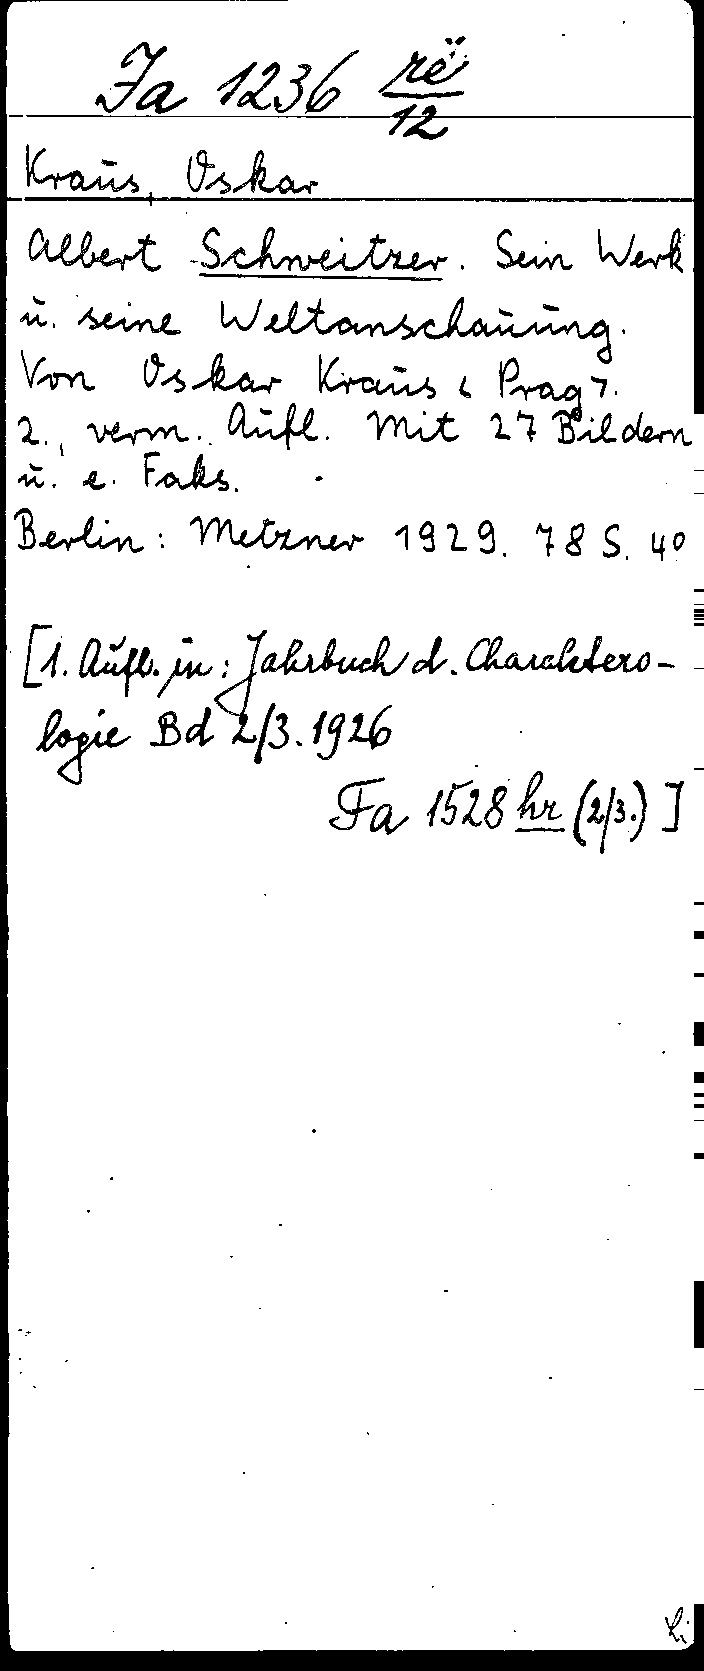 Ja 1236 rë/12
Kraus, Oskar
Albert Schweitzer. Sein Werk
u. seine Weltanschauung.
Von Oskar Kraus < Prag >.
2., verm. Aufl. Mit 27 Bildern
u. e. Faks.
Berlin: Metzner 1929. 78 S. 4º
[1. Aufl. in: Jahrbuch d. Charaktero-
logie Bd 2/3. 1926
Fa 1528 hr (2/3.) ]
Li